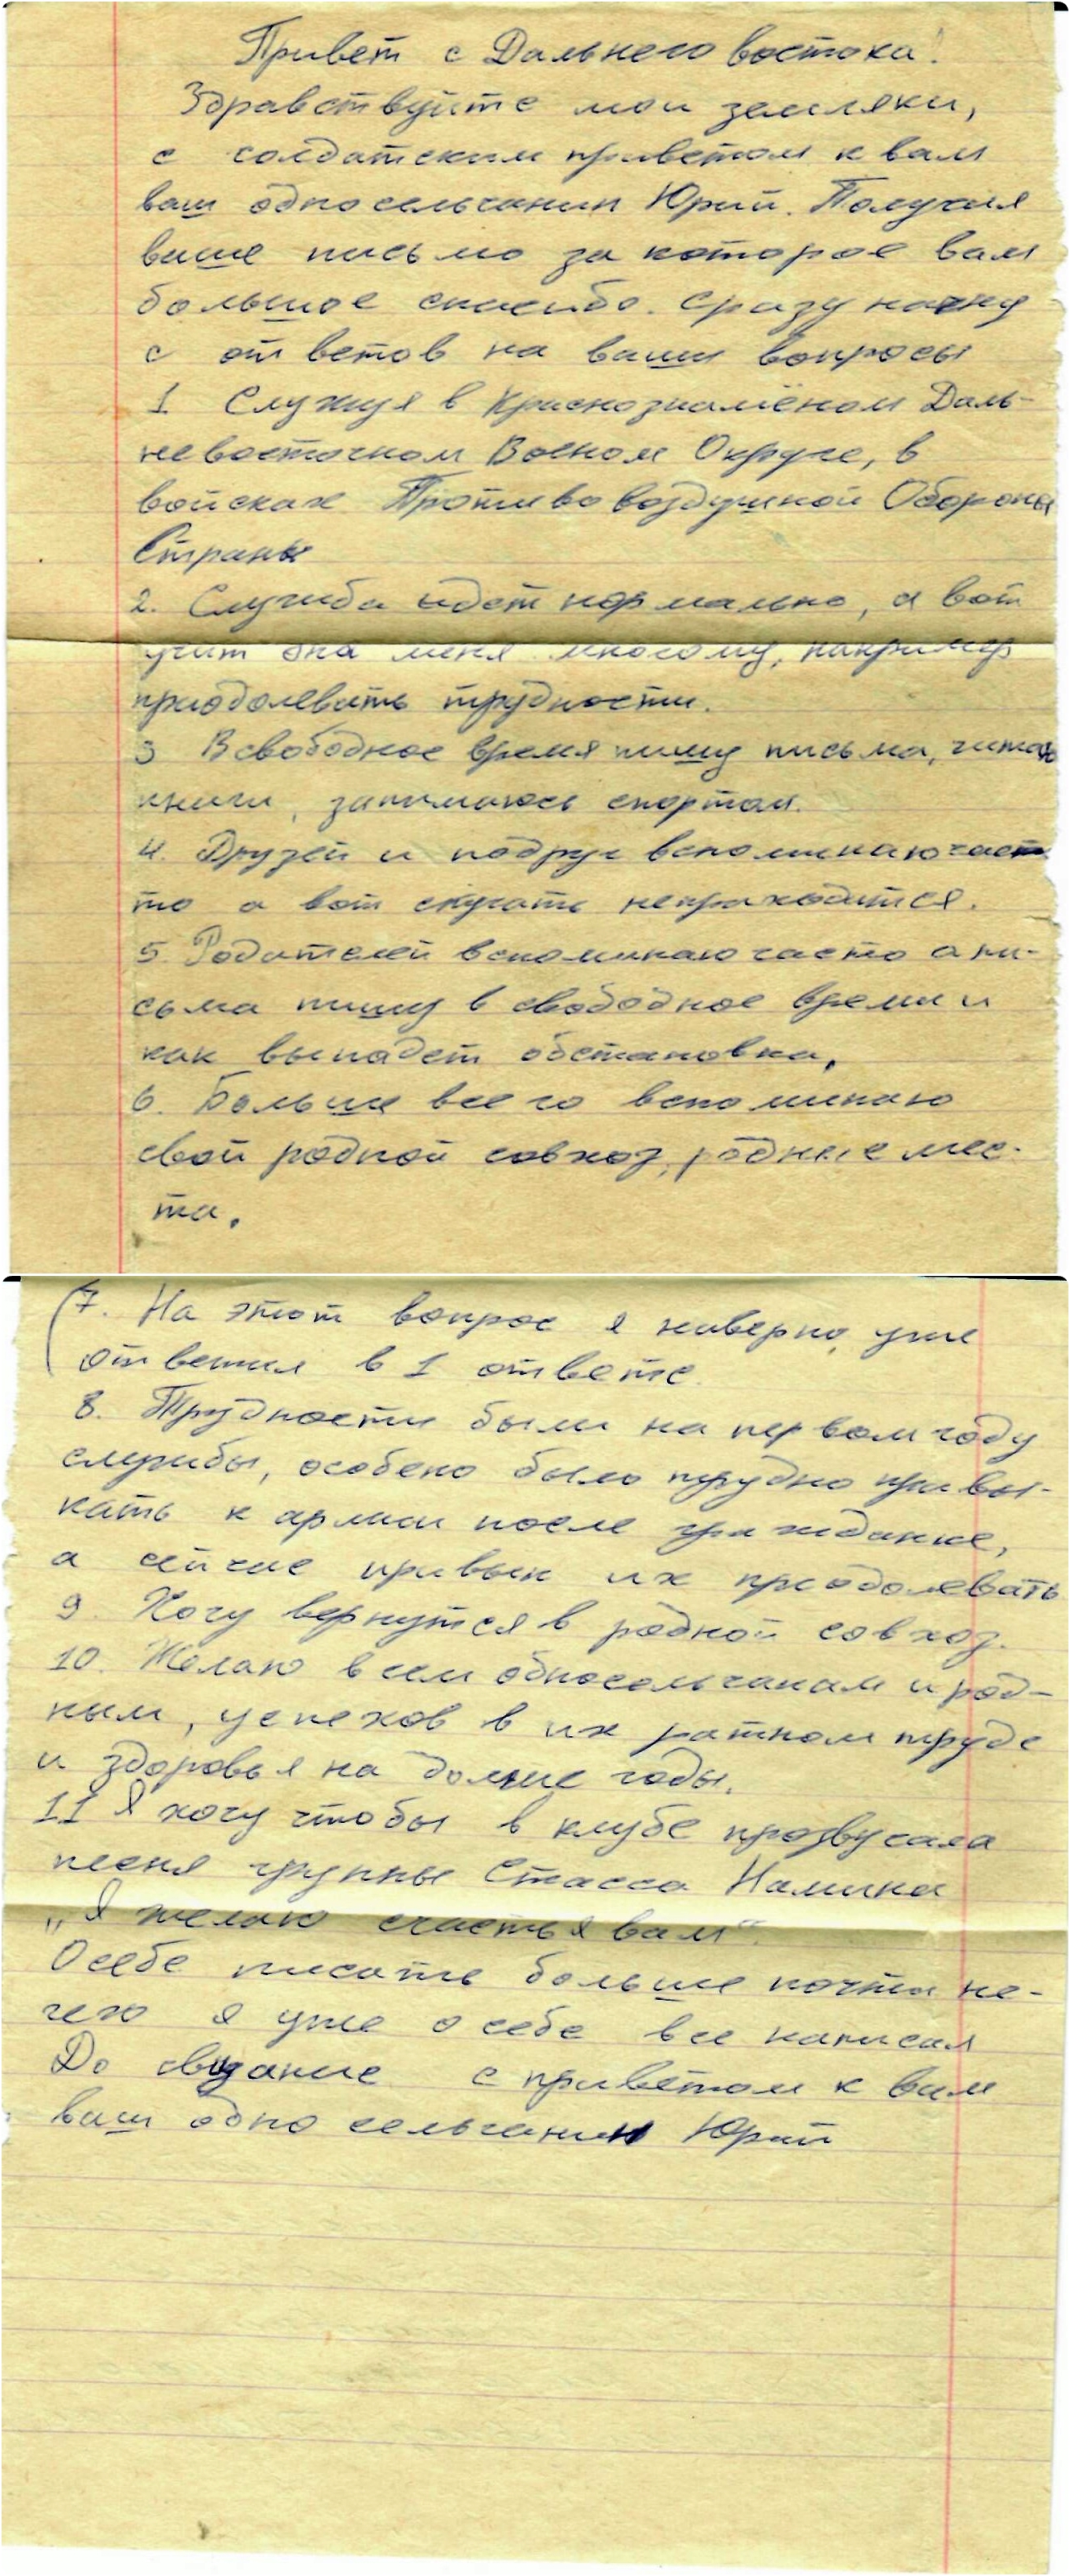 Привет с Дальнего востока!
Здравствуйте мои земляки,
с солдатским приветом к вам
ваш односельчанин Юрий. Получил
ваше письмо за которое вам
большое спасибо. Сразу начну
с ответов на ваши вопросы
1 Служу я в Краснознамёном Даль-
невосточном Военом Округе, в
войсках Противовоздушной Обороны
Страны
2. Служба идет нормально, а вот
учит она меня многому, например
приодолевать трудности.
3 В свободное время пишу письма, читаю
книги, занимаюсь спортом.
4. Друзей и подруг вспоминаю част
то а вот скучать неприходится.
5. Родителей вспоминаю часто а пи-
сьма пишу в свободное время и
как выпадет обстановка.
6. Больше всего вспоминаю
свой родной совхоз, родные мес-
та.
7. На этот вопрос я наверно, уже
ответил в 1 ответе.
8. Трудности были на первом году
службы, особено было трудно привы-
кать к армии после гражданке,
а сейчас привык их преодолевать
9. Хочу вернутся в родной совхоз.
10. Желаю всем односельчанам и род-
ным, успехов в их ратном труде
и здоровья на долгие годы.
11 Я хочу чтобы в клубе прозвучала
песня группы Стасса Намина
„Я желаю счастья вам“.
О себе писать больше почти не-
чего я уже о себе все написал
До свидание с приветом к вам
ваш односельчанин Юрий